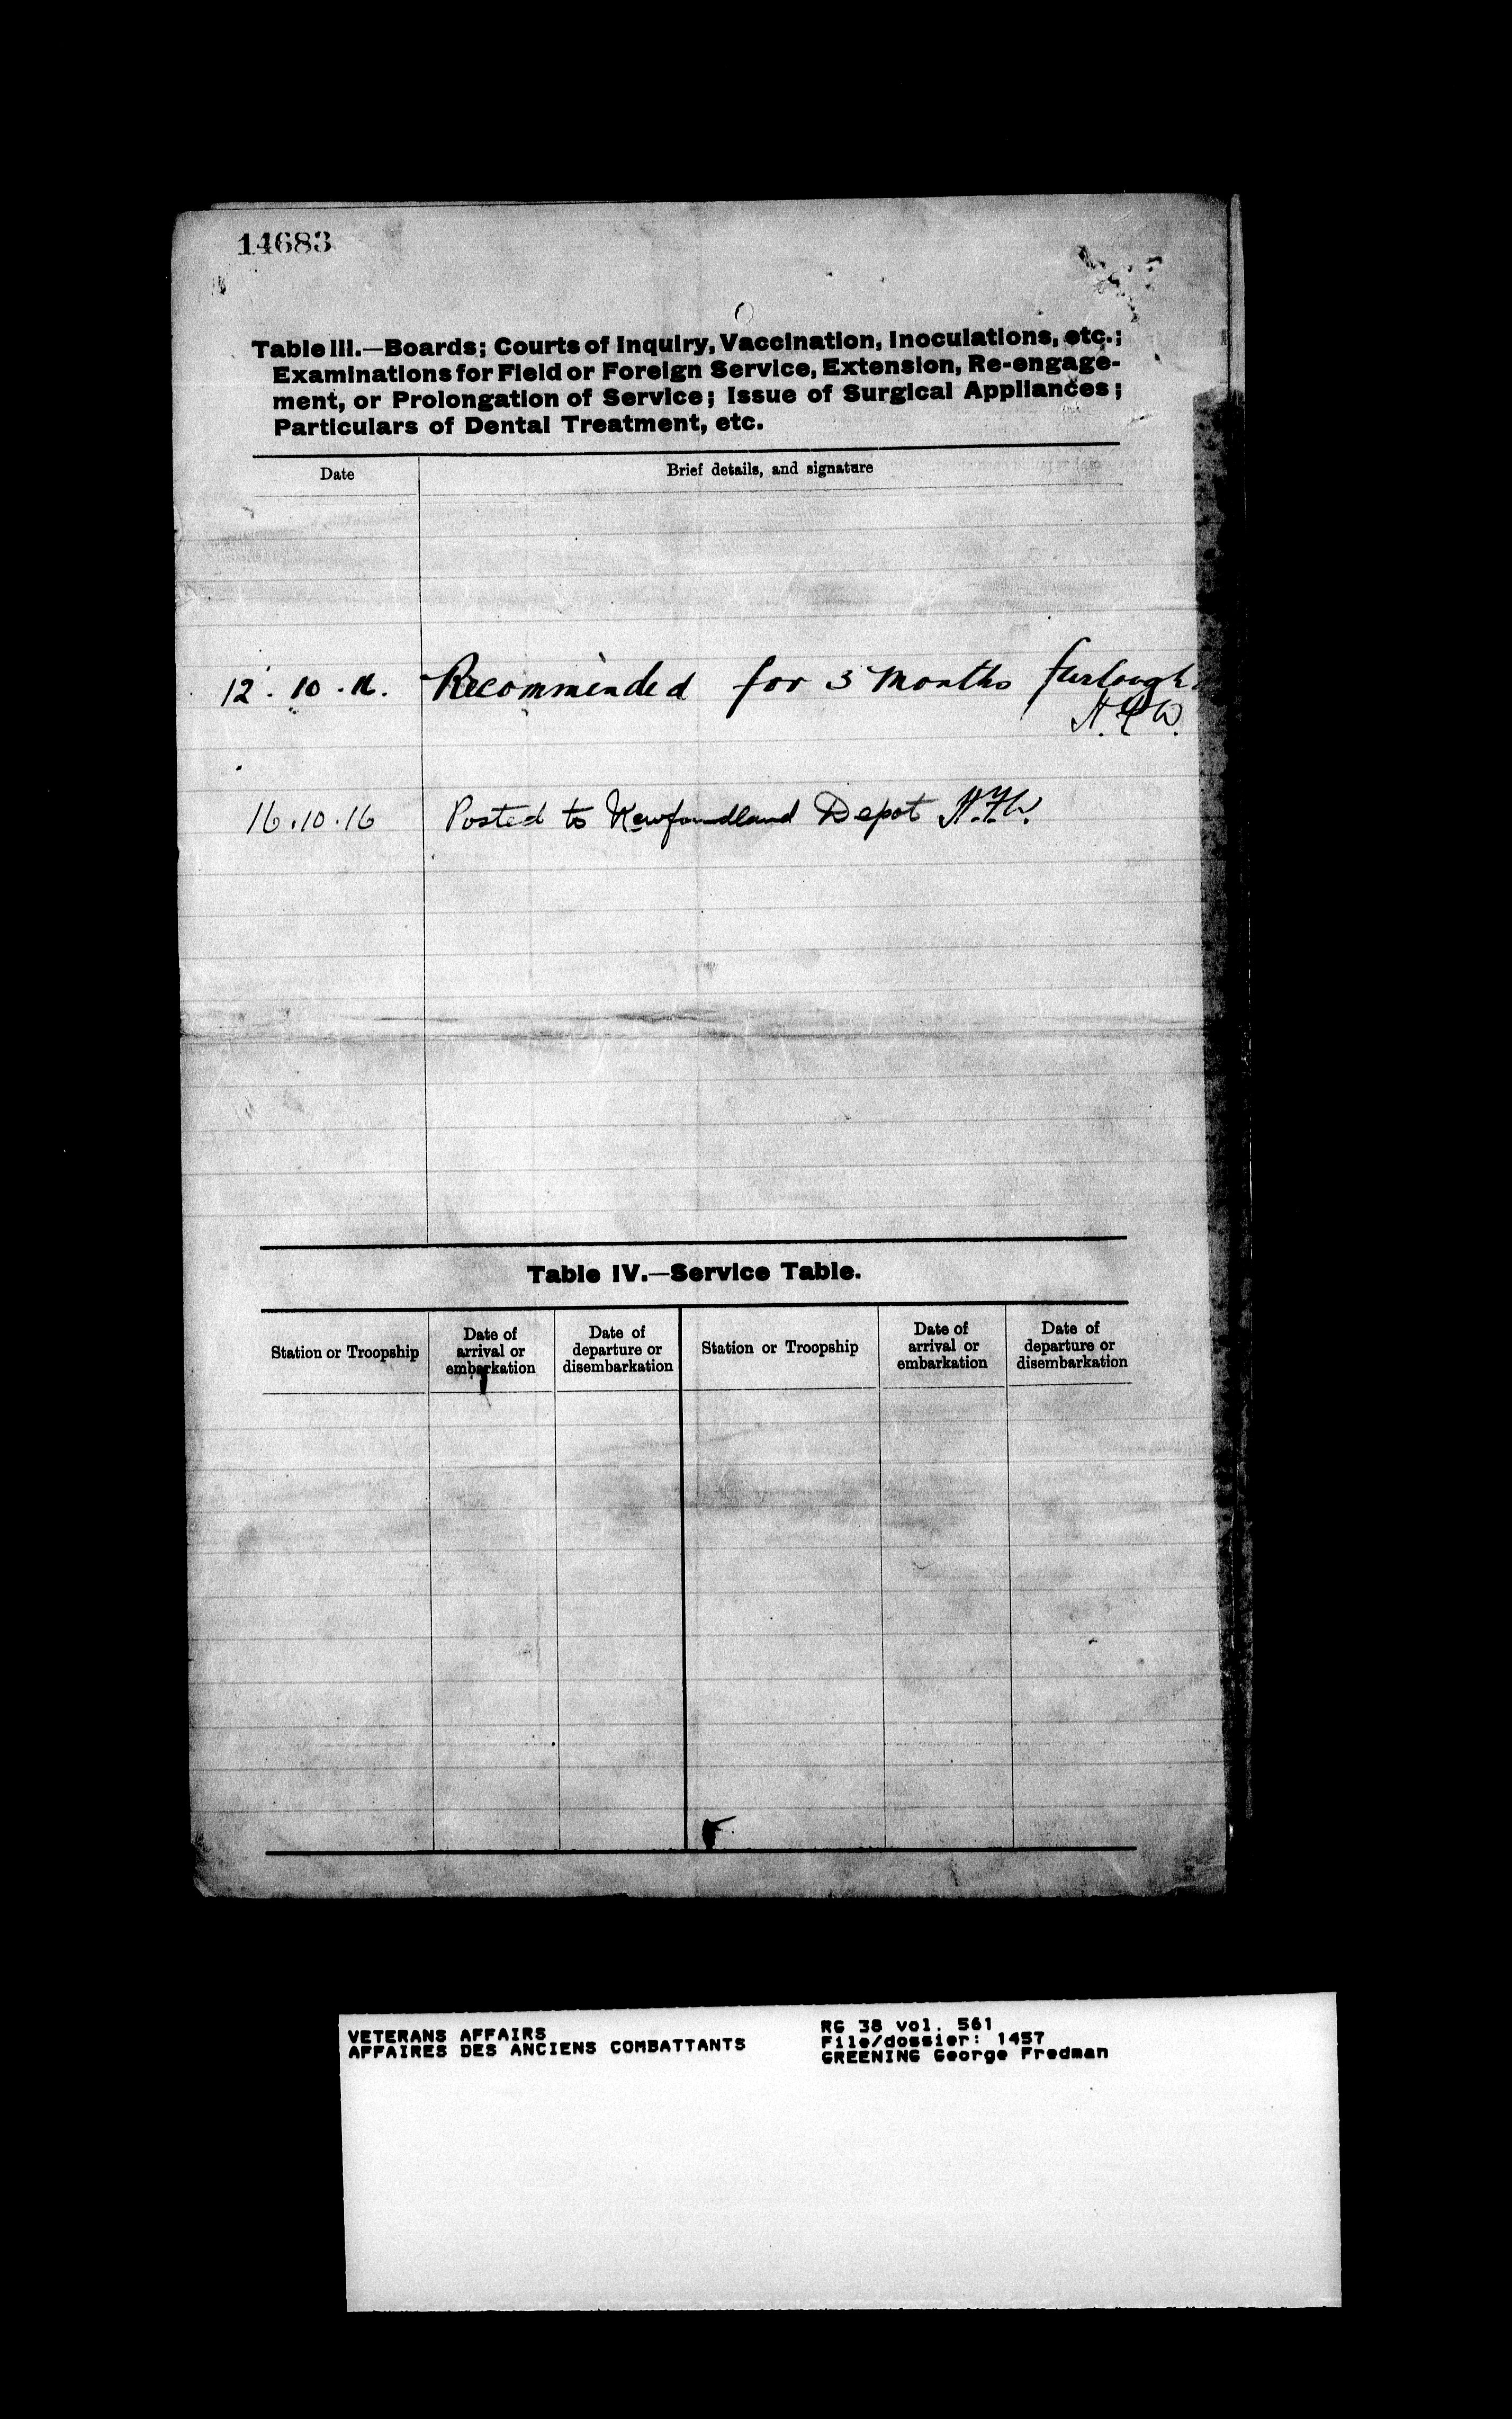 14683
Table III.—Boards; Courts of Inquiry, Vaccination, Inoculations, etc.;
Examinations for Field or Foreign Service, Extension, Re-engage-
ment, or Prolongation of Service; Issue of Surgical Appliances;
Particulars of Dental Treatment, etc.
Date Brief details, and signature
12.10.16. Recommended for 3 months furlough
16.10.16 Posted to Newfoundland Depot
Table IV.—Service Table.
Station or Troopship Date of arrival or embarkation Date of departure or disembarkation Station or Troopship Date of arrival or embarkation Date of departure or disembarkation
VETERANS AFFAIRS
AFFAIRES DES ANCIENS COMBATTANTS
RG 38 vol. 561
File/dossier: 1457
GREENING George Fredman